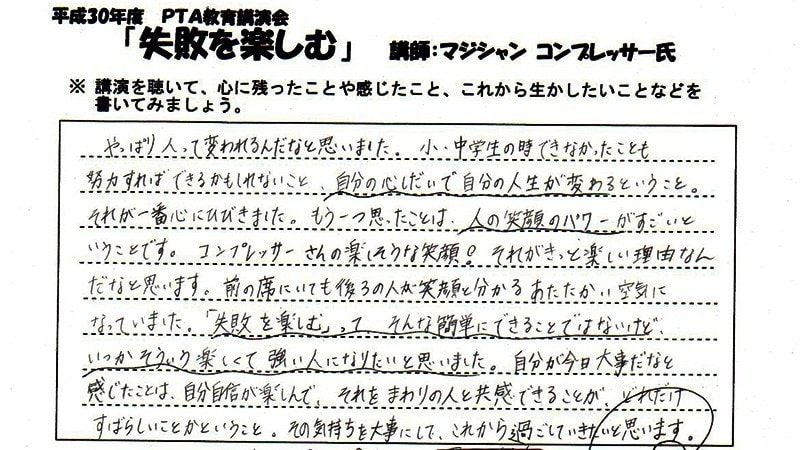 平成30年度 PTA教育講演会
「失敗を楽しむ」 講師：マジシャン コンプレッサー氏
※ 講演を聴いて、心に残ったことや感じたこと、これから生かしたいことなどを
書いてみましょう。
やっぱり人って変われるんだなと思いました。小・中学生の時できなかったことも
努力すればできるかもしれないこと、自分の心しだいで自分の人生が変わるということ。
それが一番心にひびきました。もう一つ思ったことは、人の笑顔のパワーがすごいと
いうことです。コンプレッサーさんの楽しそうな笑顔！それがきっと楽しい理由なん
だなと思います。前の席にいても後ろの人が笑顔と分かるあたたかい空気に
なっていました。「失敗を楽しむ」って、そんな簡単にできることではないけど、
いつかそういう楽しくて強い人になりたいと思いました。自分が今日大事だなと
感じたことは、自分自信が楽しんで、それをまわりの人と共感できることが、どれだけ
すばらしいことかということ。その気持ちを大事にして、これから過ごしていきたいと思います。